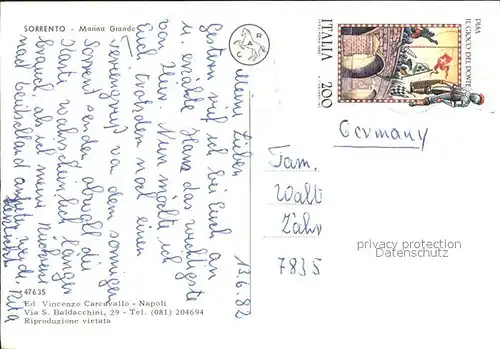 SORRENTO - Marina Grande
13.6.82
Meine Lieben
Gestern rief ich bei Euch an
u. erzählte Hans das wichtigste
von hier. Nun möchte ich
Euch trotzdem noch einen
Feriengruß von dem sonnigen
Sorrent senden, obwohl die
Karte wahrscheinlich länger
braucht, als ich meine Rückreise
nach Deutschland antreten werde.
Herzlichst Rita
47635
Ed. Vincenzo Carcavallo - Napoli
Via S. Baldacchini, 29 - Tel. (081) 204694
Riproduzione vietata
R A C
PISA
IL GIOCO DEL PONTE
ITALIA 200
Germany
Fam.
Walt
Zähr
7835
privacy protection
Datenschutz